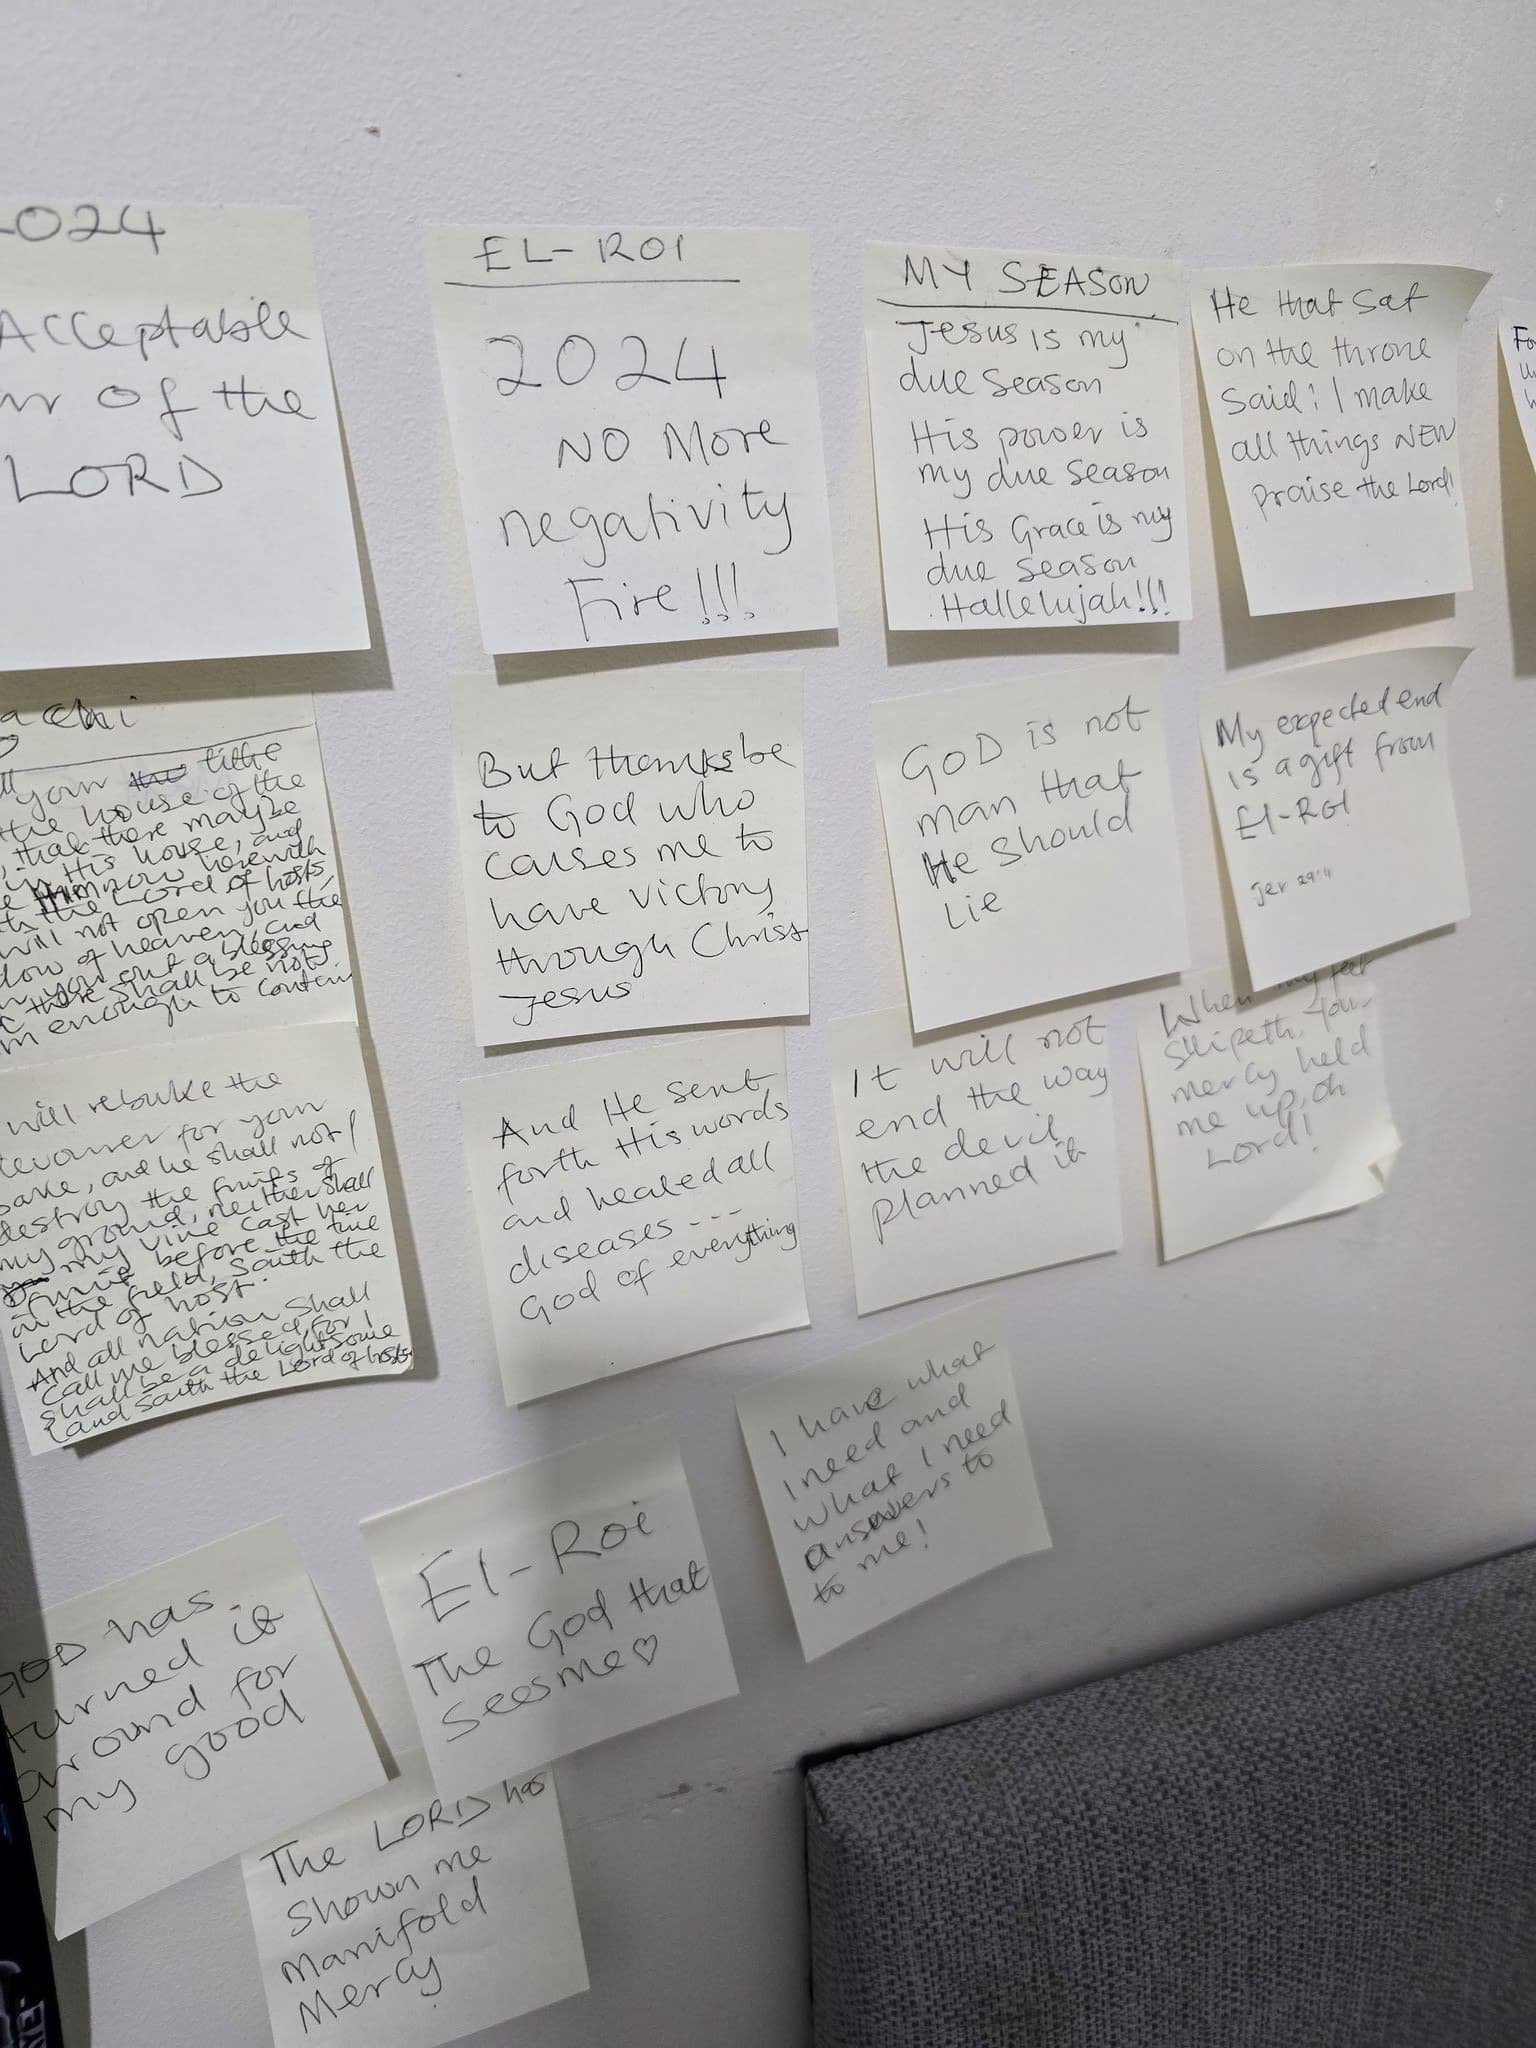 2024
Acceptable
of the
LORD
EL-ROI
2024
NO More
negativity
Fire!!!
MY SEASON
Jesus is my
due season
His power is
my due season
His Grace is my
due season
Hallelujah!!!
He that sat
on the throne
Said: I make
all things NEW
Praise the Lord!
your tithe
the house of the
, that there maybe
in His house, and
now herewith
the Lord of hosts,
will not open you the
of heaven, and
you out a blessing
there shall be not
enough to contain
But thanks be
to God who
causes me to
have victory
through Christ
Jesus
GOD is not
man that
He Should
Lie
My expected end
is a gift from
El-ROI
Jer 29:11
will rebuke the
for your
sake, and he shall not
destroy the fruits of
my ground, neither shall
my vine cast her
fruit before the time
in the field, saith the
Lord of host.
And all nation shall
call me blessed, for I
shall be a delightsome
land saith the Lord of hosts
And He sent
forth His words
and healed all
diseases ---
God of everything
It will not
end the way
the devil
planned it
When my feet
slipeth, your
mercy held
me up, oh
Lord!
I have what
I need and
what I need
answers to
to me!
GOD has
turned it
around for
my good
El-Roi
The God that
Sees me♡
The LORD has
Shown me
Manifold
Mercy